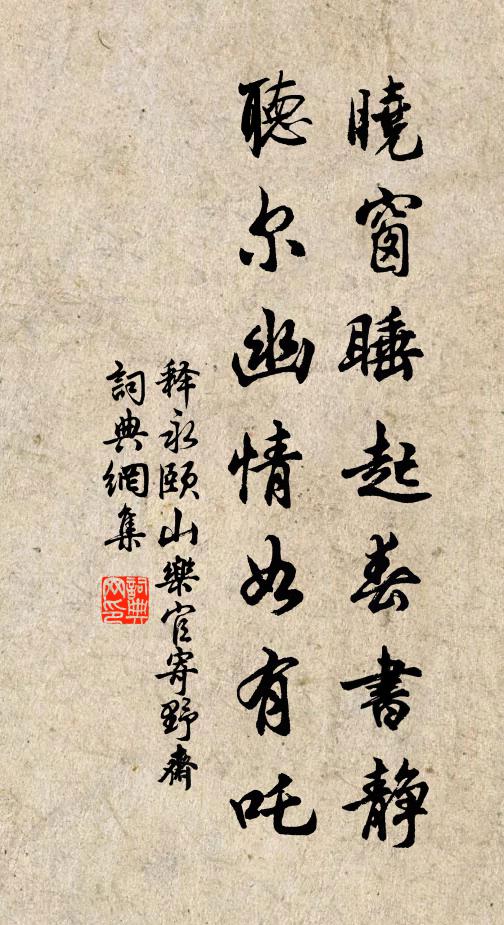 曉窗睡起春書靜
聴尔幽情如有吒
释永頤山樂官寄野齋
詞典網集
詞典
网印